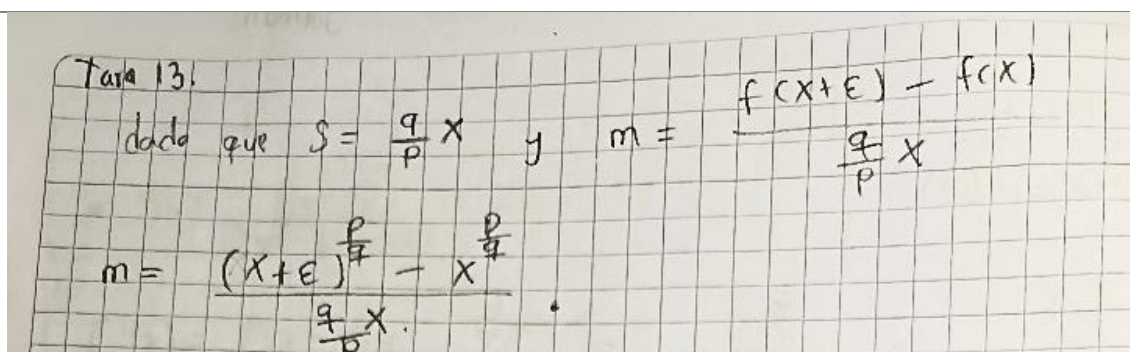 Tarea 13.
dado que S = q/p X y m = f(X+ε) - f(X) / q/p X
m = (X+ε)^p/q - X^p/q / q/p X.